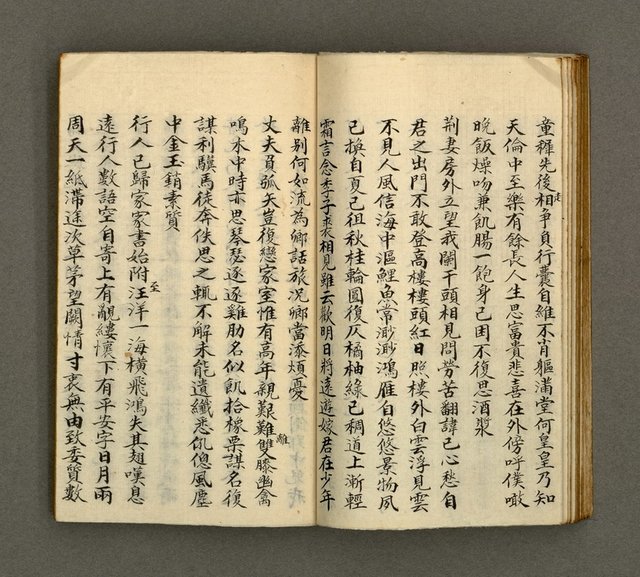 童穉先後相爭負行囊自維不肖軀滿堂何皇皇乃知
天倫中至樂有餘長人生思富貴悲喜在外傍呼僕噉
晚飯燥吻兼飢腸一飽身已困不復思酒漿
荊妻房外立望我闌干頭相見問勞苦翻諱已心愁自
君之出門不敢登高樓樓頭紅日照樓外白雲浮見雲
不見人風信海中漚鯉魚常渺渺鴻雁自悠悠景物夙
已換自夏已徂秋桂輪圓復仄橘柚綠已稠道上漸輕
霜言念季子裘相見雖云歡明日將遠遊嫁君在少年
離別何如流為鄉話旅況鄉當添煩憂
丈夫負弧矢豈復戀家室惟有高年親艱難雙膝幽禽
離
鳴木中時亦思琴瑟逐逐雞肋名似飢拾橡栗謀名復
謀利驥馬徒奔佚思之輒不解未能遺纖悉飢傯風塵
中金玉銷素質
行人已歸家家書始附汪洋一海橫飛鴻失其翅嘆息
至
遠行人數語空自寄上有覼縷懷下有平安字日月兩
周天一紙滯途次草茅望闕情寸衷無由致委質數